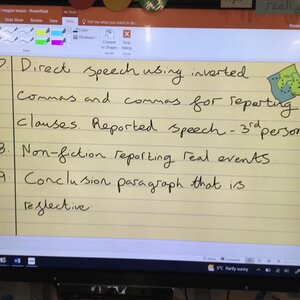 magpie lesson - PowerPoint
Tell me what you want to do...
Color
Thickness
Convert to Shapes
Stop Inking
Direct speech using inverted
commas and commas for reporting
clauses. Reported speech - 3rd person
8. Non-fiction reporting real events.
9. Conclusion paragraph that is
reflective.
5°C Partly sunny